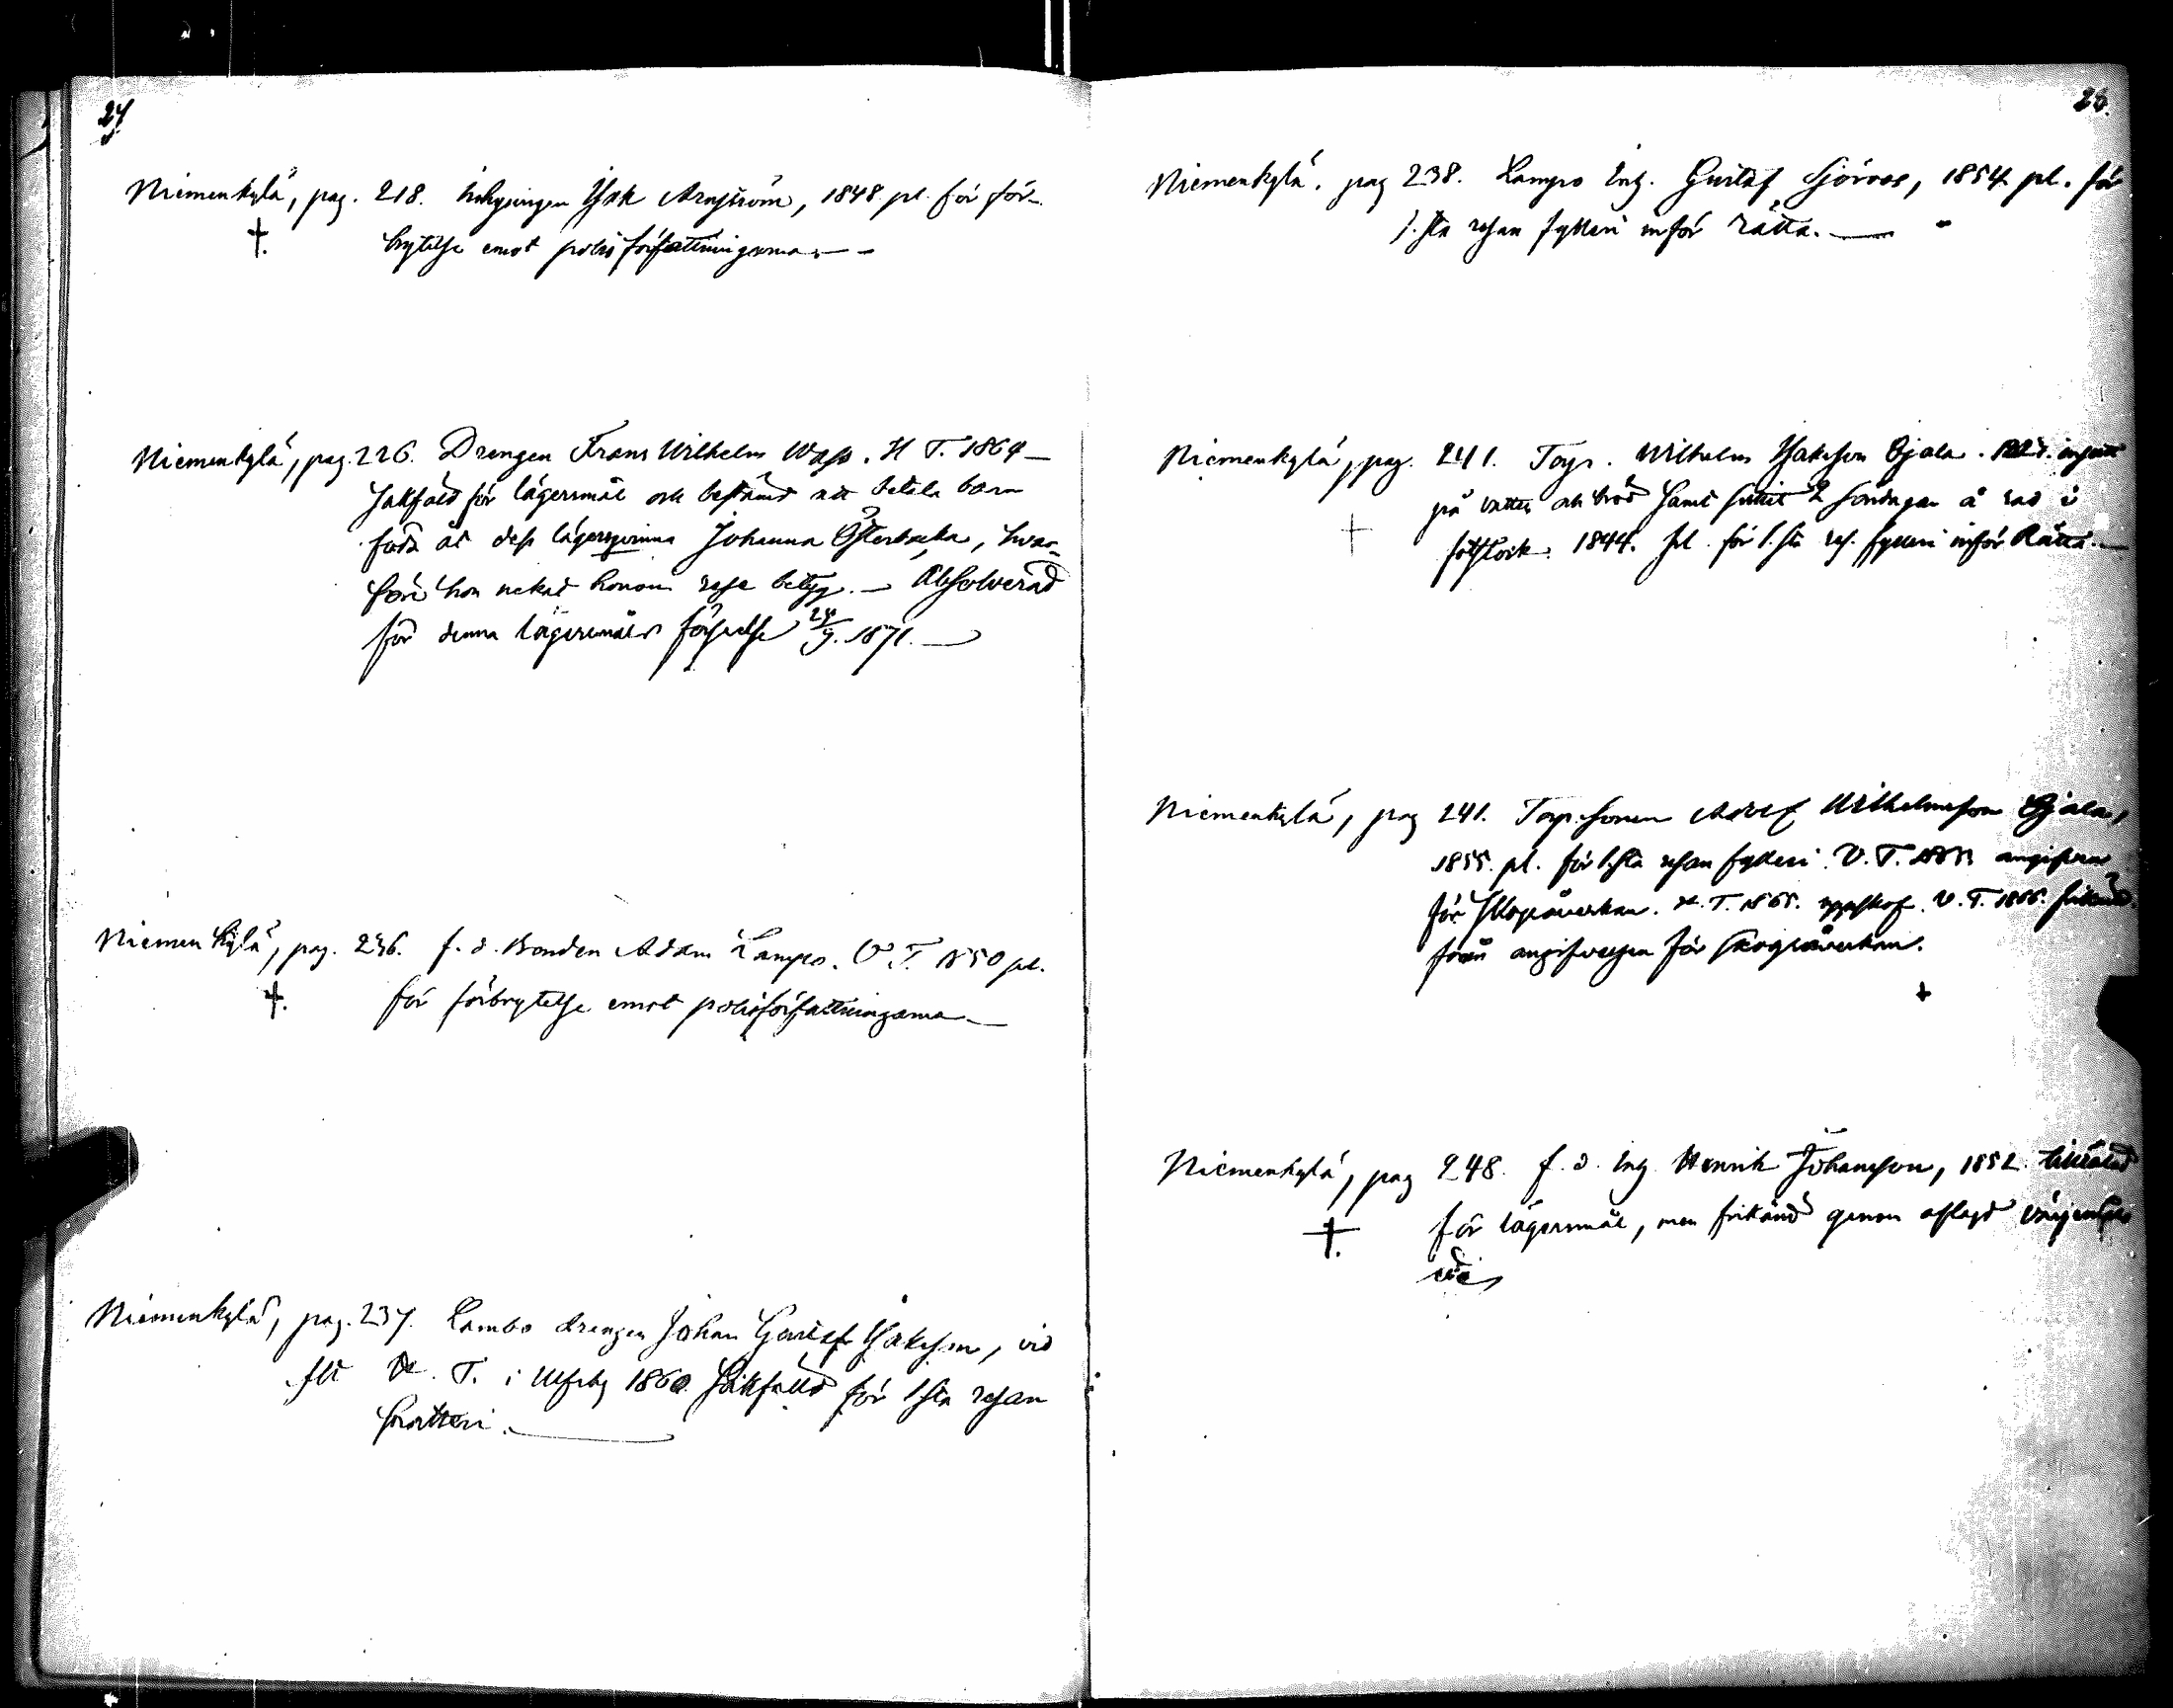 24
Niemenkylä, pag. 218. Inhysingen Isak Arnström, 1848 pl. för för-
brytelse emot polisförfattningarna.
Niemenkylä, pag. 226. Drengen Frans Wilhelm Wass. H T. 1864
sakfäld för lägersmål och bestämd att betala barn
föda åt dess lägersqvinna Johanna Österbacka, hvar-
före hon nekat honom rese betyg. — Absolverad
för denna lägersmåls förseelse 24/9. 1871.
Niemenkylä, pag. 236. f. d. Bonden Adam Lampo. V T. 1850 pl.
för förbrytelse emot polisförfattningarna
Niemenkylä, pag. 237. Lambo drengen Johan Gustaf Isaksson, vid
T. i Ulfsby 1860 sakfälld för 1sta resan
snatteri.
Niemenkylä, pag 238. Lampo Inh. Gustaf Sjöroos, 1854 pl. för
1.sta resan fylleri inför rätta.
Niemenkylä, pag. 241. Torp. Wilhelm Isaksson Ojala.
på vatten och bröd samt suttit 2 söndagar å rad i
fotstock. 1844. pl. för 1.sta res. fylleri inför Rätta.
Niemenkylä, pag 241. Torp.sonen Adolf Wilhelmsson Ojala,
1855. pl. för 1.sta resan fylleri. V. T. angifven
för skogsåverkan. H. T. 1865. uppskof. V. T. 1866. frikänd
från angifvelsen för skogsåverkan.
Niemenkylä, pag 248. f. d. Inh. Henrik Johansson, 1852. tilltalad
för lägersmål, men frikänd genom aflagd värjemåls
ed